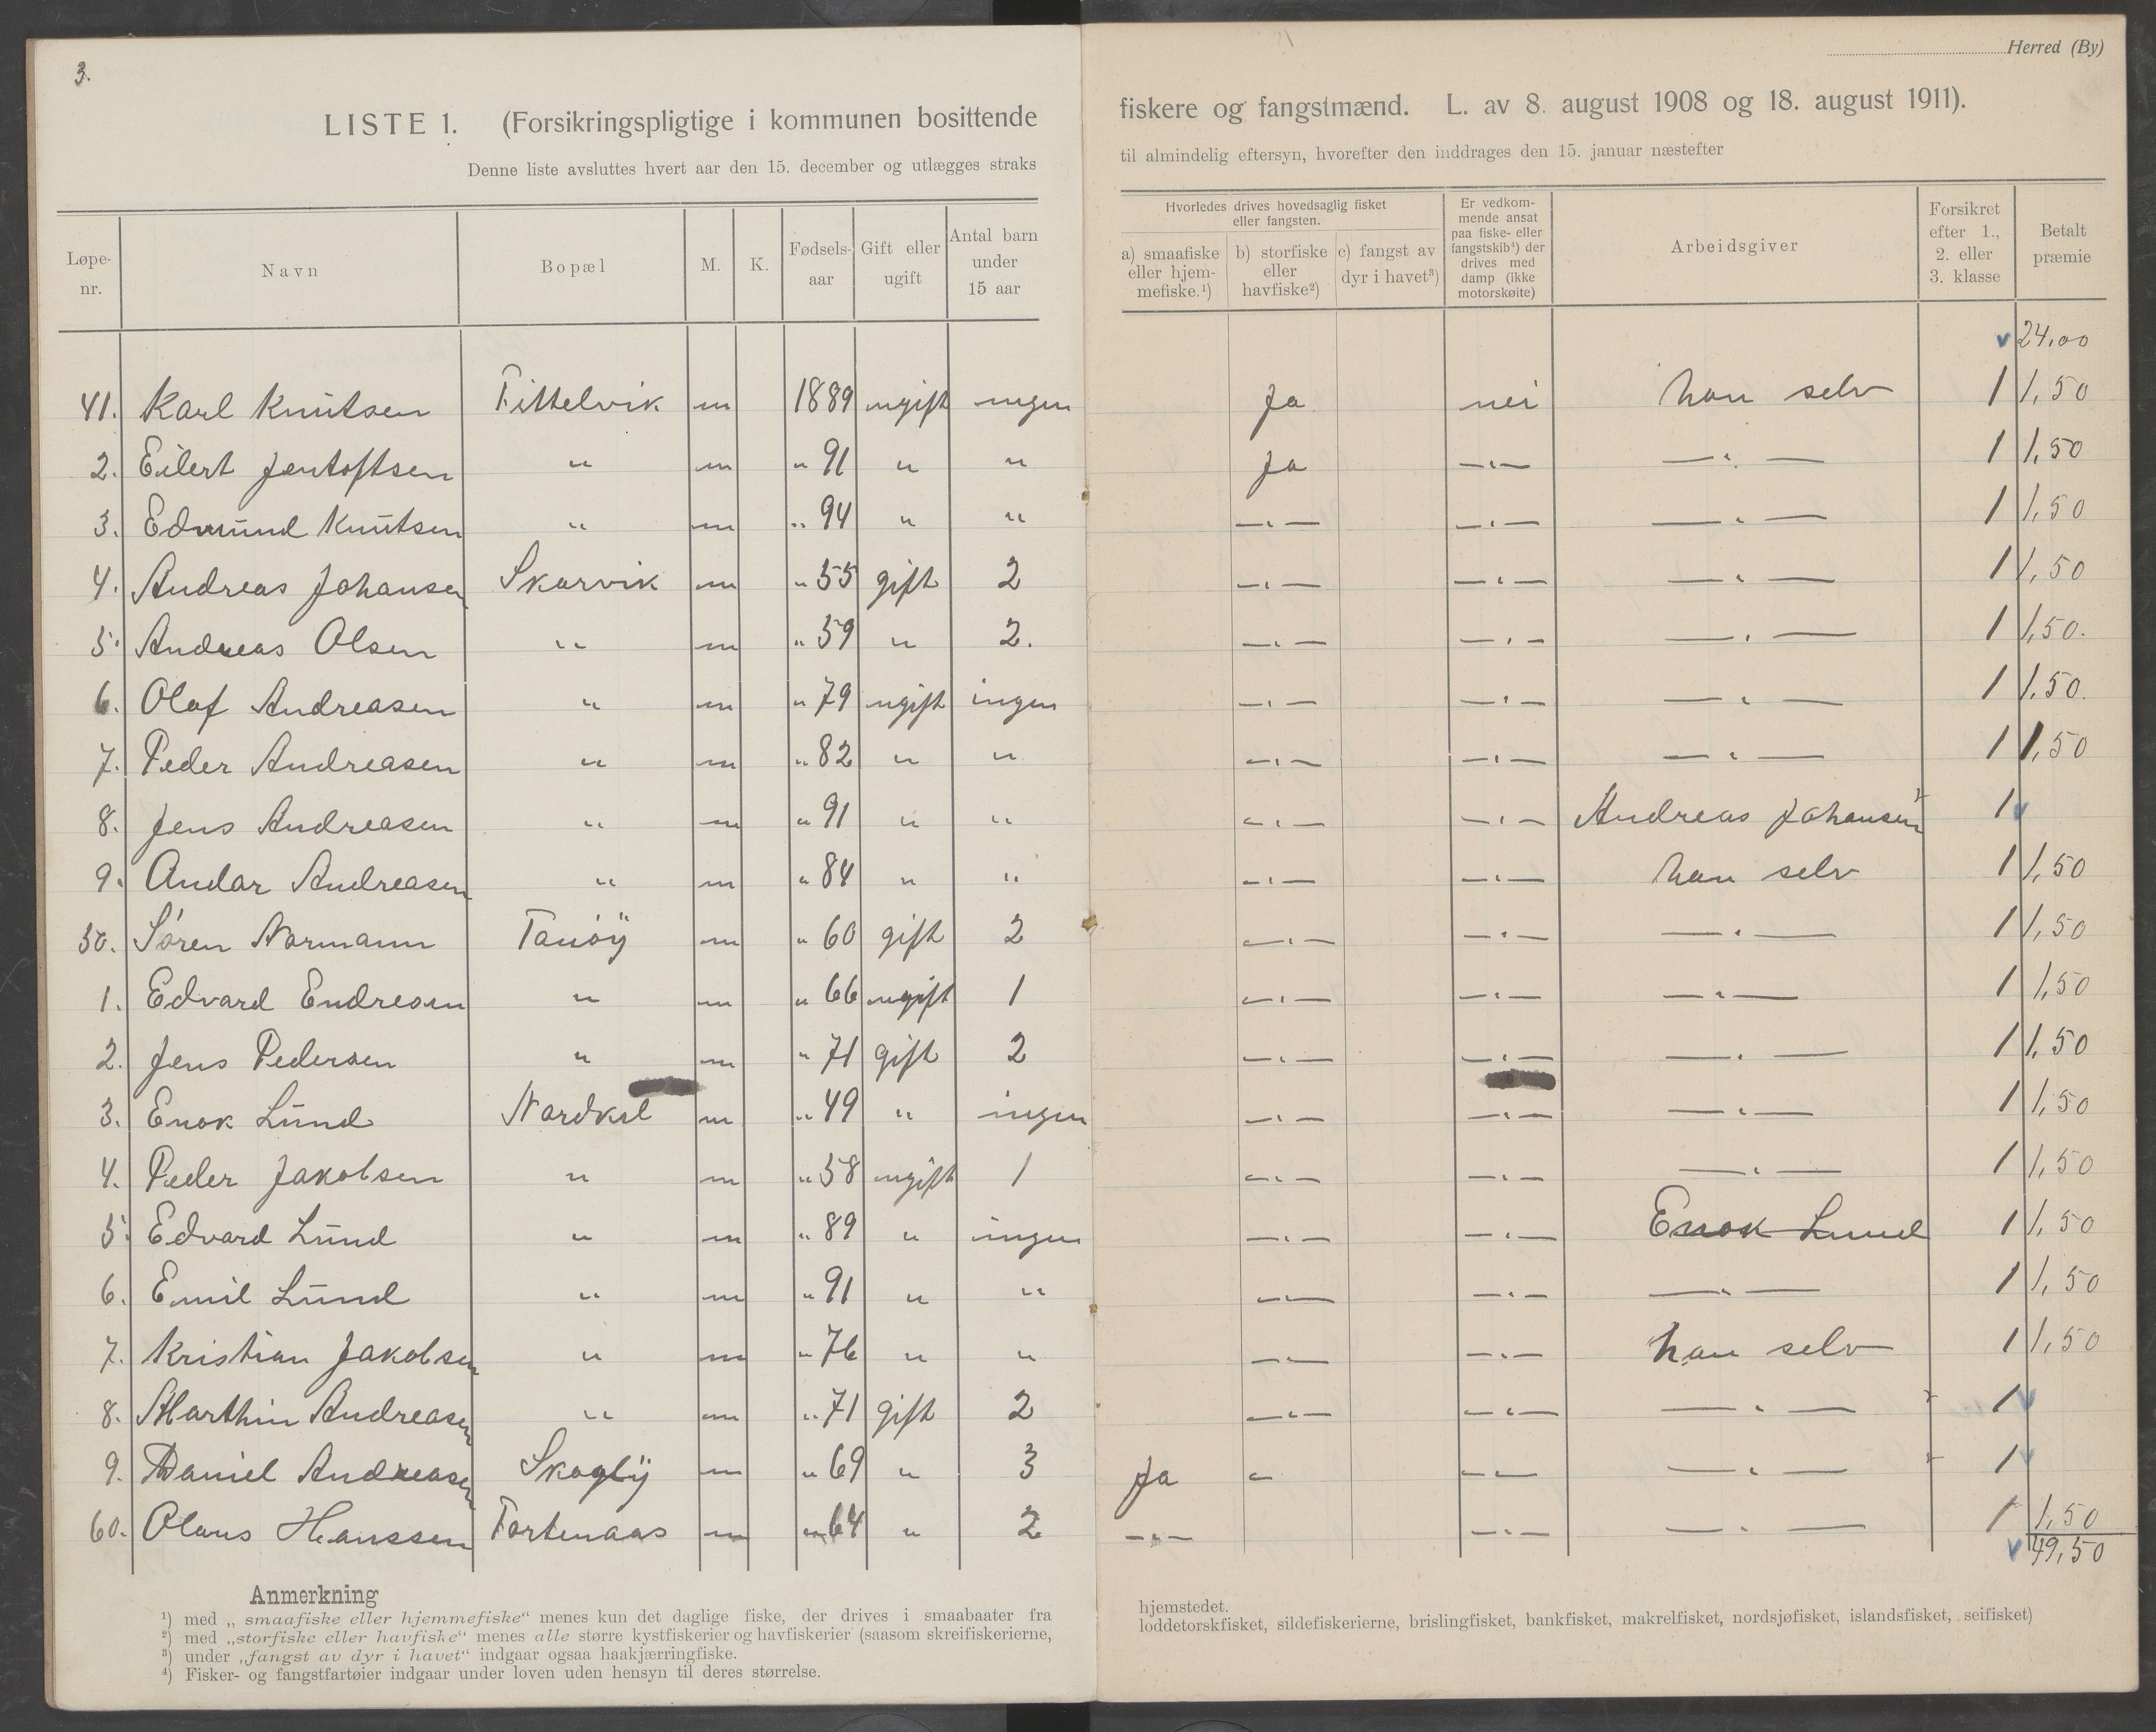 3.
Herred (By)
LISTE 1. (Forsikringspligtige i kommunen bosittende fiskere og fangstmænd. L. av 8. august 1908 og 18. august 1911).
Denne liste avsluttes hvert aar den 15. december og utlægges straks til almindelig eftersyn, hvorefter den inddrages den 15. januar næstefter
Løpe-nr. Navn Bopæl M. K. Fødsels-aar Gift eller ugift Antal barn under 15 aar Hvorledes drives hovedsaglig fisket eller fangsten. a) smaafiske eller hjem-mefiske.¹) b) storfiske eller havfiske²) c) fangst av dyr i havet³) Er vedkom-mende ansat paa fiske- eller fangstskib⁴) der drives med damp (ikke motorskøite) Arbeidsgiver Forsikret efter 1., 2. eller 3. klasse Betalt præmie
v 24,00
41. Karl Knutsen Tittelvik m 1889 ugift ingen Ja nei han selv 1 1,50
2. Eilert Jentoftsen " m " 91 " " Ja —"— —"— 1 1,50
3. Edmund Knutsen " m " 94 " " —"— —"— —"— 1 1,50
4. Andreas Johansen Skarvik m " 55 gift 2 —"— —"— —"— 1 1,50
5. Andreas Olsen " m " 59 " 2. —"— —"— —"— 1 1,50.
6. Olaf Andreasen " m " 79 ugift ingen —"— —"— —"— 1 1,50.
7. Peder Andreasen " m " 82 " " —"— —"— —"— 1 1,50
8. Jens Andreasen " m " 91 " " —"— —"— Andreas Johansen 1 v
9. Andar Andreasen " m " 84 " " —"— —"— han selv 1 1,50
50. Søren Normann Tanöy m " 60 gift 2 —"— —"— —"— 1 1,50
1. Edvard Endresen " m " 66 ugift 1 —"— —"— —"— 1 1,50
2. Jens Pedersen " m " 71 gift 2 —"— —"— —"— 1 1,50
3. Enok Lund m " 49 " ingen —"— —"— —"— 1 1,50
4. Peder Jakobsen " m " 58 ugift 1 —"— —"— —"— 1 1,50
5 Edvard Lund " m " 89 " ingen —"— —"— Enok Lund 1 1,50
6. Emil Lund " m " 91 " " —"— —"— —"— 1 1,50
7. Kristian Jakobsen " m " 76 " " —"— —"— han selv 1 1,50
8. Marthin Andreasen " m " 71 gift 2 —"— —"— —"— 1 v
9. Daniel Andreasen m " 69 " 3 Ja — —"— —"— 1 v
60. Olaus Hanssen Fortenaas m " 64 " 2 —"— —"— —"— 1 1,50
v 49,50
Anmerkning
¹) med „smaafiske eller hjemmefiske“ menes kun det daglige fiske, der drives i smaabaater fra hjemstedet.
²) med „storfiske eller havfiske“ menes alle større kystfiskerier og havfiskerier (saasom skreifiskerierne, loddetorskfisket, sildefiskerierne, brislingfisket, bankfisket, makrelfisket, nordsjøfisket, islandsfisket, seifisket)
³) under „fangst av dyr i havet“ indgaar ogsaa haakjærringfiske.
⁴) Fisker- og fangstfartøier indgaar under loven uden hensyn til deres størrelse.